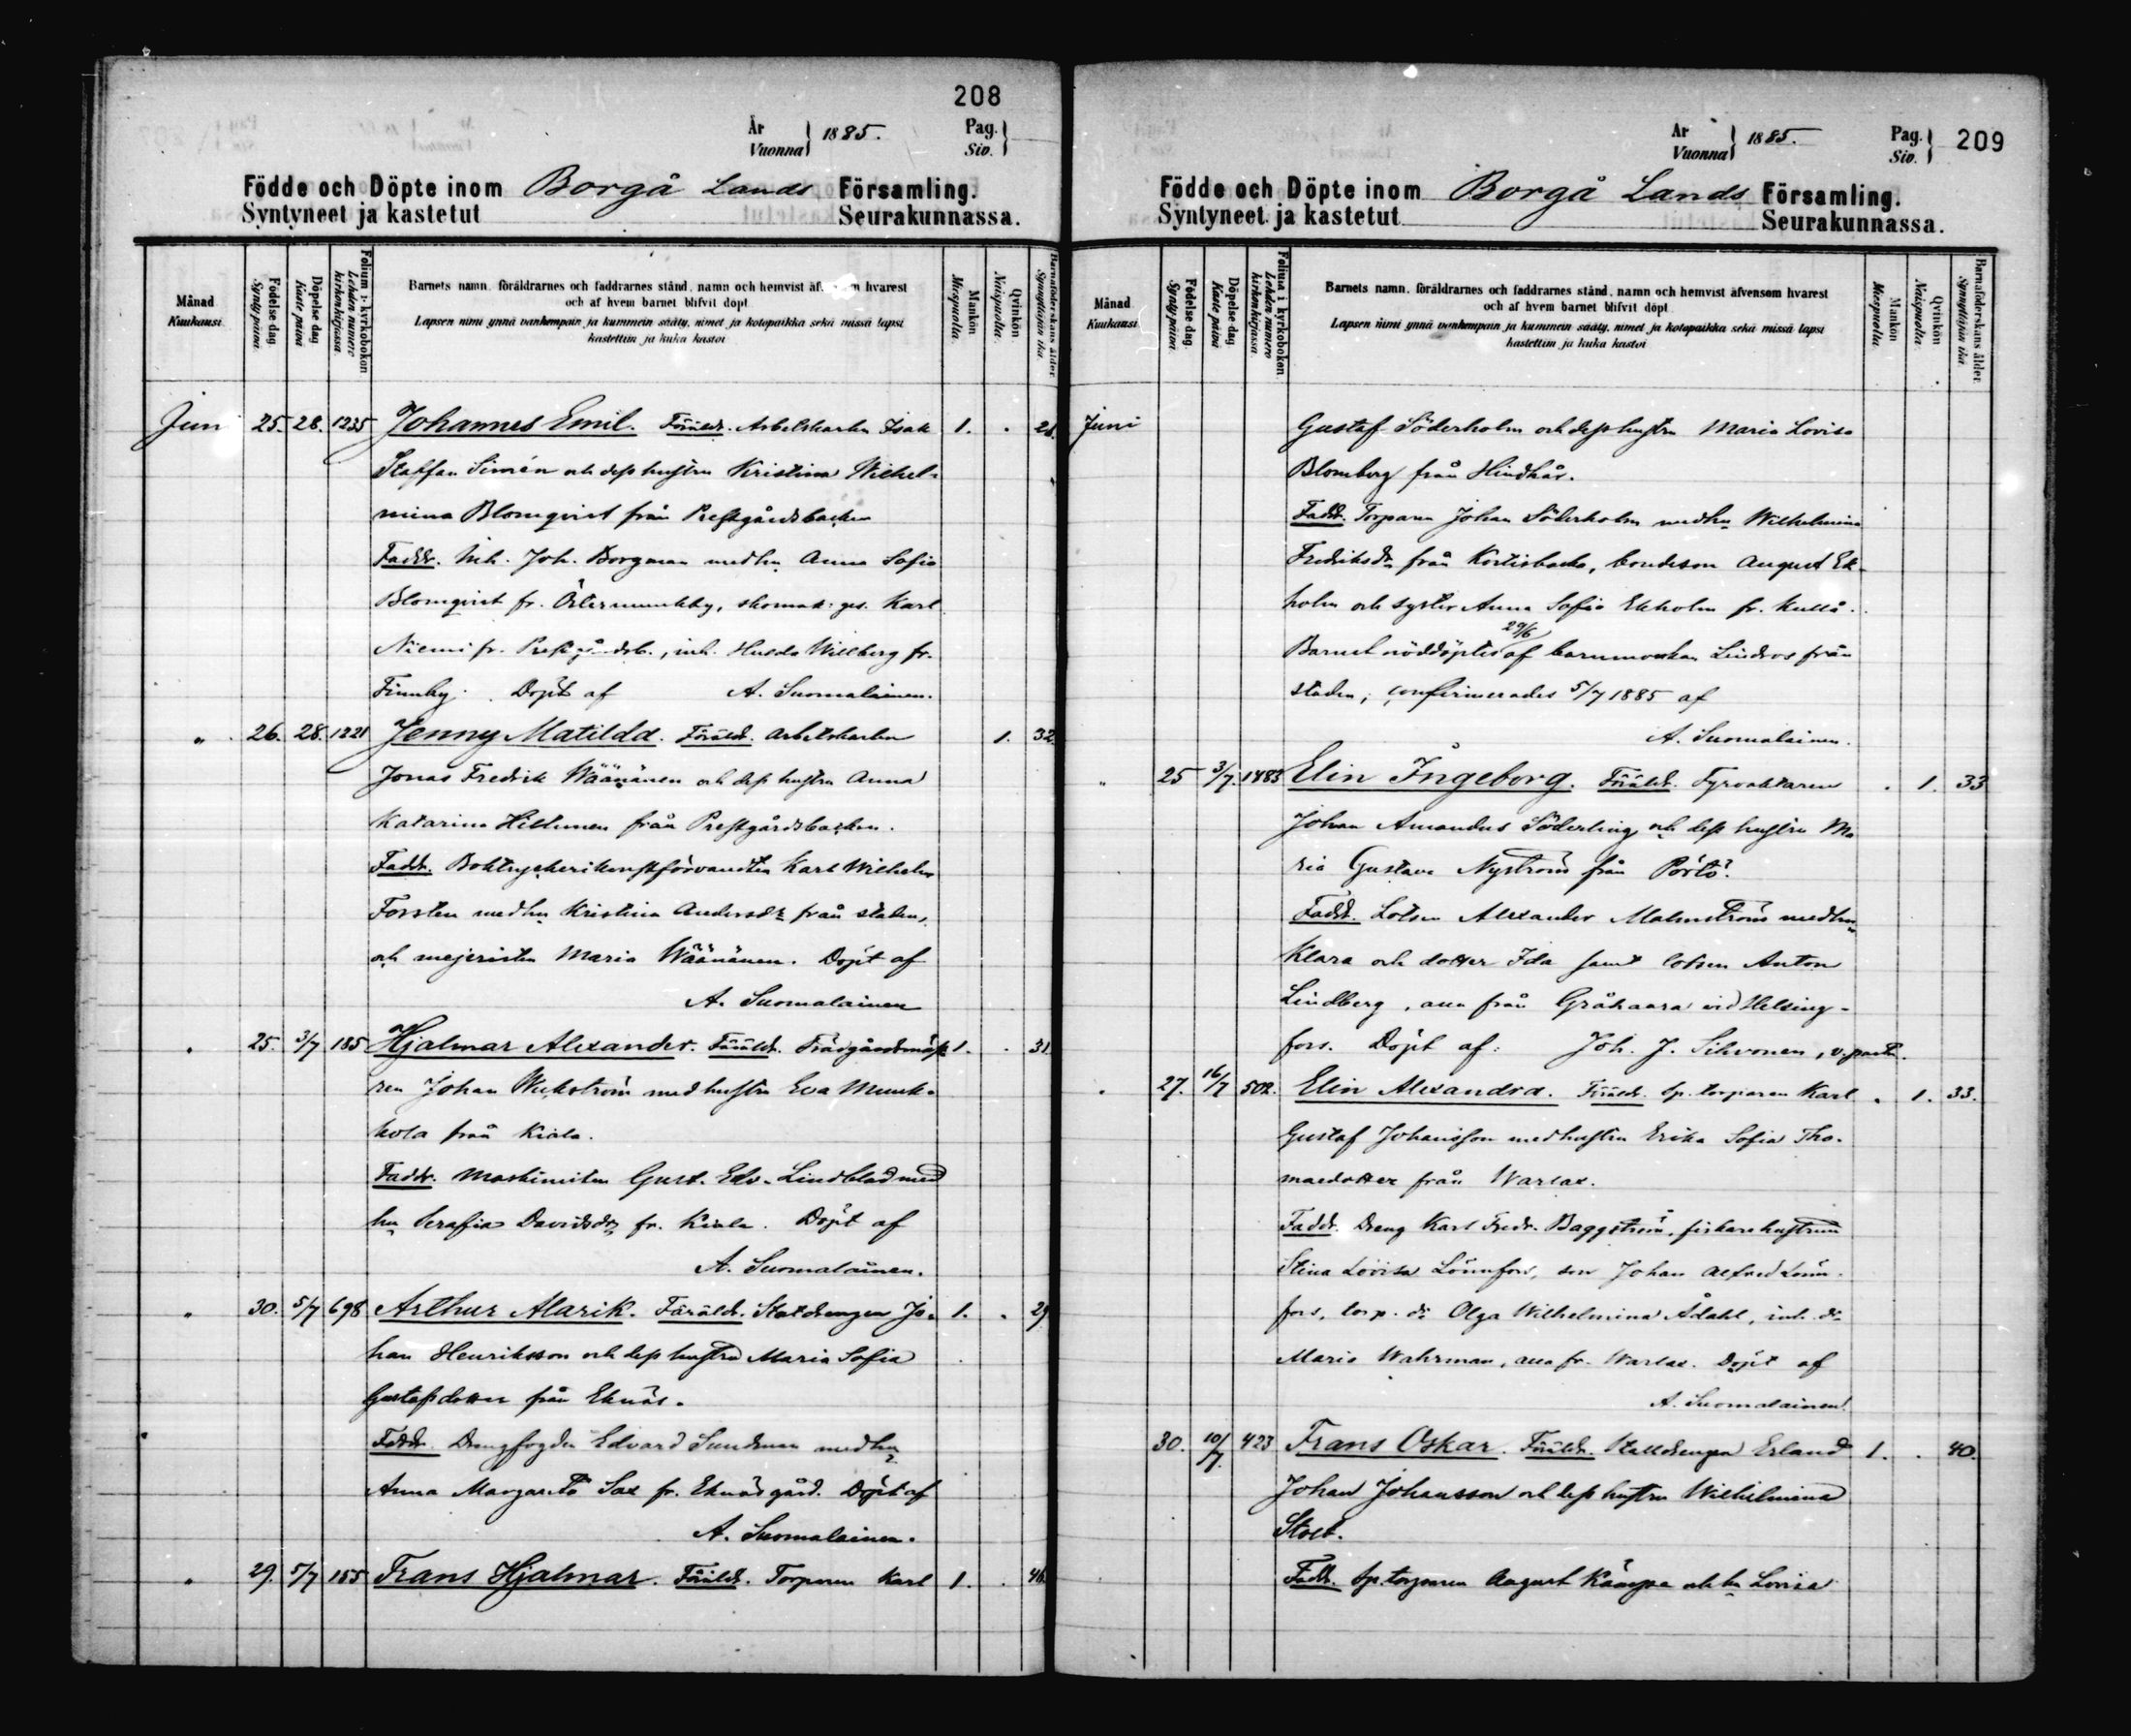 208
År
Vuonna } 1885.
Pag.
Siv. }
Födde och Döpte inom Borgå Lands Församling.
Syntyneet ja kastetut Seurakunnassa.
Månad
Kuukausi
Födelse dag
Synty päivä
Döpelse dag
Kaste päivä
Folium i kyrkoboken
Lehden numero
kirkonkirjassa
Barnets namn, föräldrarnes och faddrarnes stånd, namn och hemvist hvarest
och af hvem barnet blifvit döpt
Lapsen nimi ynnä vanhempain ja kummein sääty, nimet ja kotopaikka sekä missä lapsi
kastettiin ja kuka kastoi
Mankön
Miespuolia.
Qvinkön
Naispuolia.
Barnaföderskans ålder
Synnyttäjän ikä
Juni 25. 28. 1235 Johannes Emil. Föräldr. Arbetskarlen Isak 1. .
Staffan Simén och dess hustru Kristina Wilhel-
mina Blomqvist från Prestgårdsbacken
Faddr. Inh. Joh. Borgman med hu Anna Sofia
Blomqvist fr. Östermunkby, skomak. ges. Karl
Niemi fr. Prestgårdsb., inh. Hulda Willberg fr.
Finnby. Döpt af A. Suomalainen.
" 26. 28. 1221 Jenny Matilda. Föräldr. Arbetskarlen 1. 32
Jonas Fredrik Wäänänen och dess hustru Anna
Katarina Hiltunen från Prestgårdsbacken.
Faddr. Boktryckerikonstförvandten Karl Wilhelm
Forstén med hu Kristina Andersdr från staden,
och mejeristen Maria Wäänänen. Döpt af
A. Suomalainen
" 25. 3/7 185 Hjalmar Alexander. Föräldr. Trädgårdsmäst 1. . 31
ren Johan Wickström med hustru Eva Munk-
hola från Kiala.
Faddr. Maskinisten Gust. Edv. Lindblad med
hu Serafia Davidsdr fr. Kiala. Döpt af
A. Suomalainen.
" 30. 5/7 698 Arthur Alarik. Föräldr. Statdrengen Jo- 1. . 29
han Henriksson och dess hustru Maria Sofia
Gustafsdotter från Eknäs.
Faddr. Drengfogden Edvard Sundman med hu
Anna Margareta Sax fr. Eknäs gård. Döpt af
A. Suomalainen.
" 29. 5/7 155 Frans Hjalmar. Föräldr. Torparen Karl 1. . 46
År
Vuonna } 1885.
Pag.
Siv. } 209
Födde och Döpte inom Borgå Lands Församling.
Syntyneet ja kastetut Seurakunnassa.
Månad
Kuukausi
Födelse dag
Synty päivä
Döpelse dag
Kaste päivä
Folium i kyrkoboken
Lehden numero
kirkonkirjassa
Barnets namn, föräldrarnes och faddrarnes stånd, namn och hemvist äfvensom hvarest
och af hvem barnet blifvit döpt
Lapsen nimi ynnä vanhempain ja kummein sääty, nimet ja kotopaikka sekä missä lapsi
kastettiin ja kuka kastoi
Mankön
Miespuolia.
Qvinkön
Naispuolia.
Barnaföderskans ålder
Synnyttäjän ikä
Juni Gustaf Söderholm och dess hustru Maria Lovisa
Blomberg från Hindhår.
Faddr. Torparen Johan Söderholm med hu Wilhelmina
Fredriksdr från Kortisbacka, bondeson August Ek-
holm och syster Anna Sofia Ekholm fr. Kullå.
29/6
Barnet nöddöptes af barnmorskan Lindros från
staden, confirmerades 5/7 1885 af
A. Suomalainen.
" 25 3/7. 1883 Elin Ingeborg. Föräldr. Fyrvaktaren . 1. 33
Johan Amandus Söderling och dess hustru Ma
ria Gustava Nyström från Pörtö.
Faddr. Lotsen Alexander Malmström med hu
Klara och dotter Ida samt lotsen Anton
Lindberg, alla från Gråhaara vid Helsing-
fors. Döpt af: Joh. J. Sihvonen, v. past.
" 27. 16/7 502. Elin Alexandra. Föräldr. Sp. torparen Karl . 1. 33.
Gustaf Johansson med hustru Erika Sofia Tho-
masdotter från Warlax.
Faddr. Dreng Karl Fredr. Baggström, fiskarehustrun
Stina Lovisa Lönnfors, son Johan Alfred Lönn-
fors, torp. dr Olga Wilhelmina Ådahl, inh. dr
Maria Wahrman, alla fr. Warlax. Döpt af
A. Suomalainen.
30. 10/7. 423 Frans Oskar. Föräldr. Stalldrengen Erland 1. . 40.
Johan Johansson och dess hustru Wilhelmina
Stolt.
Faddr. Sp. torparen August Kämpe och hu Lovisa